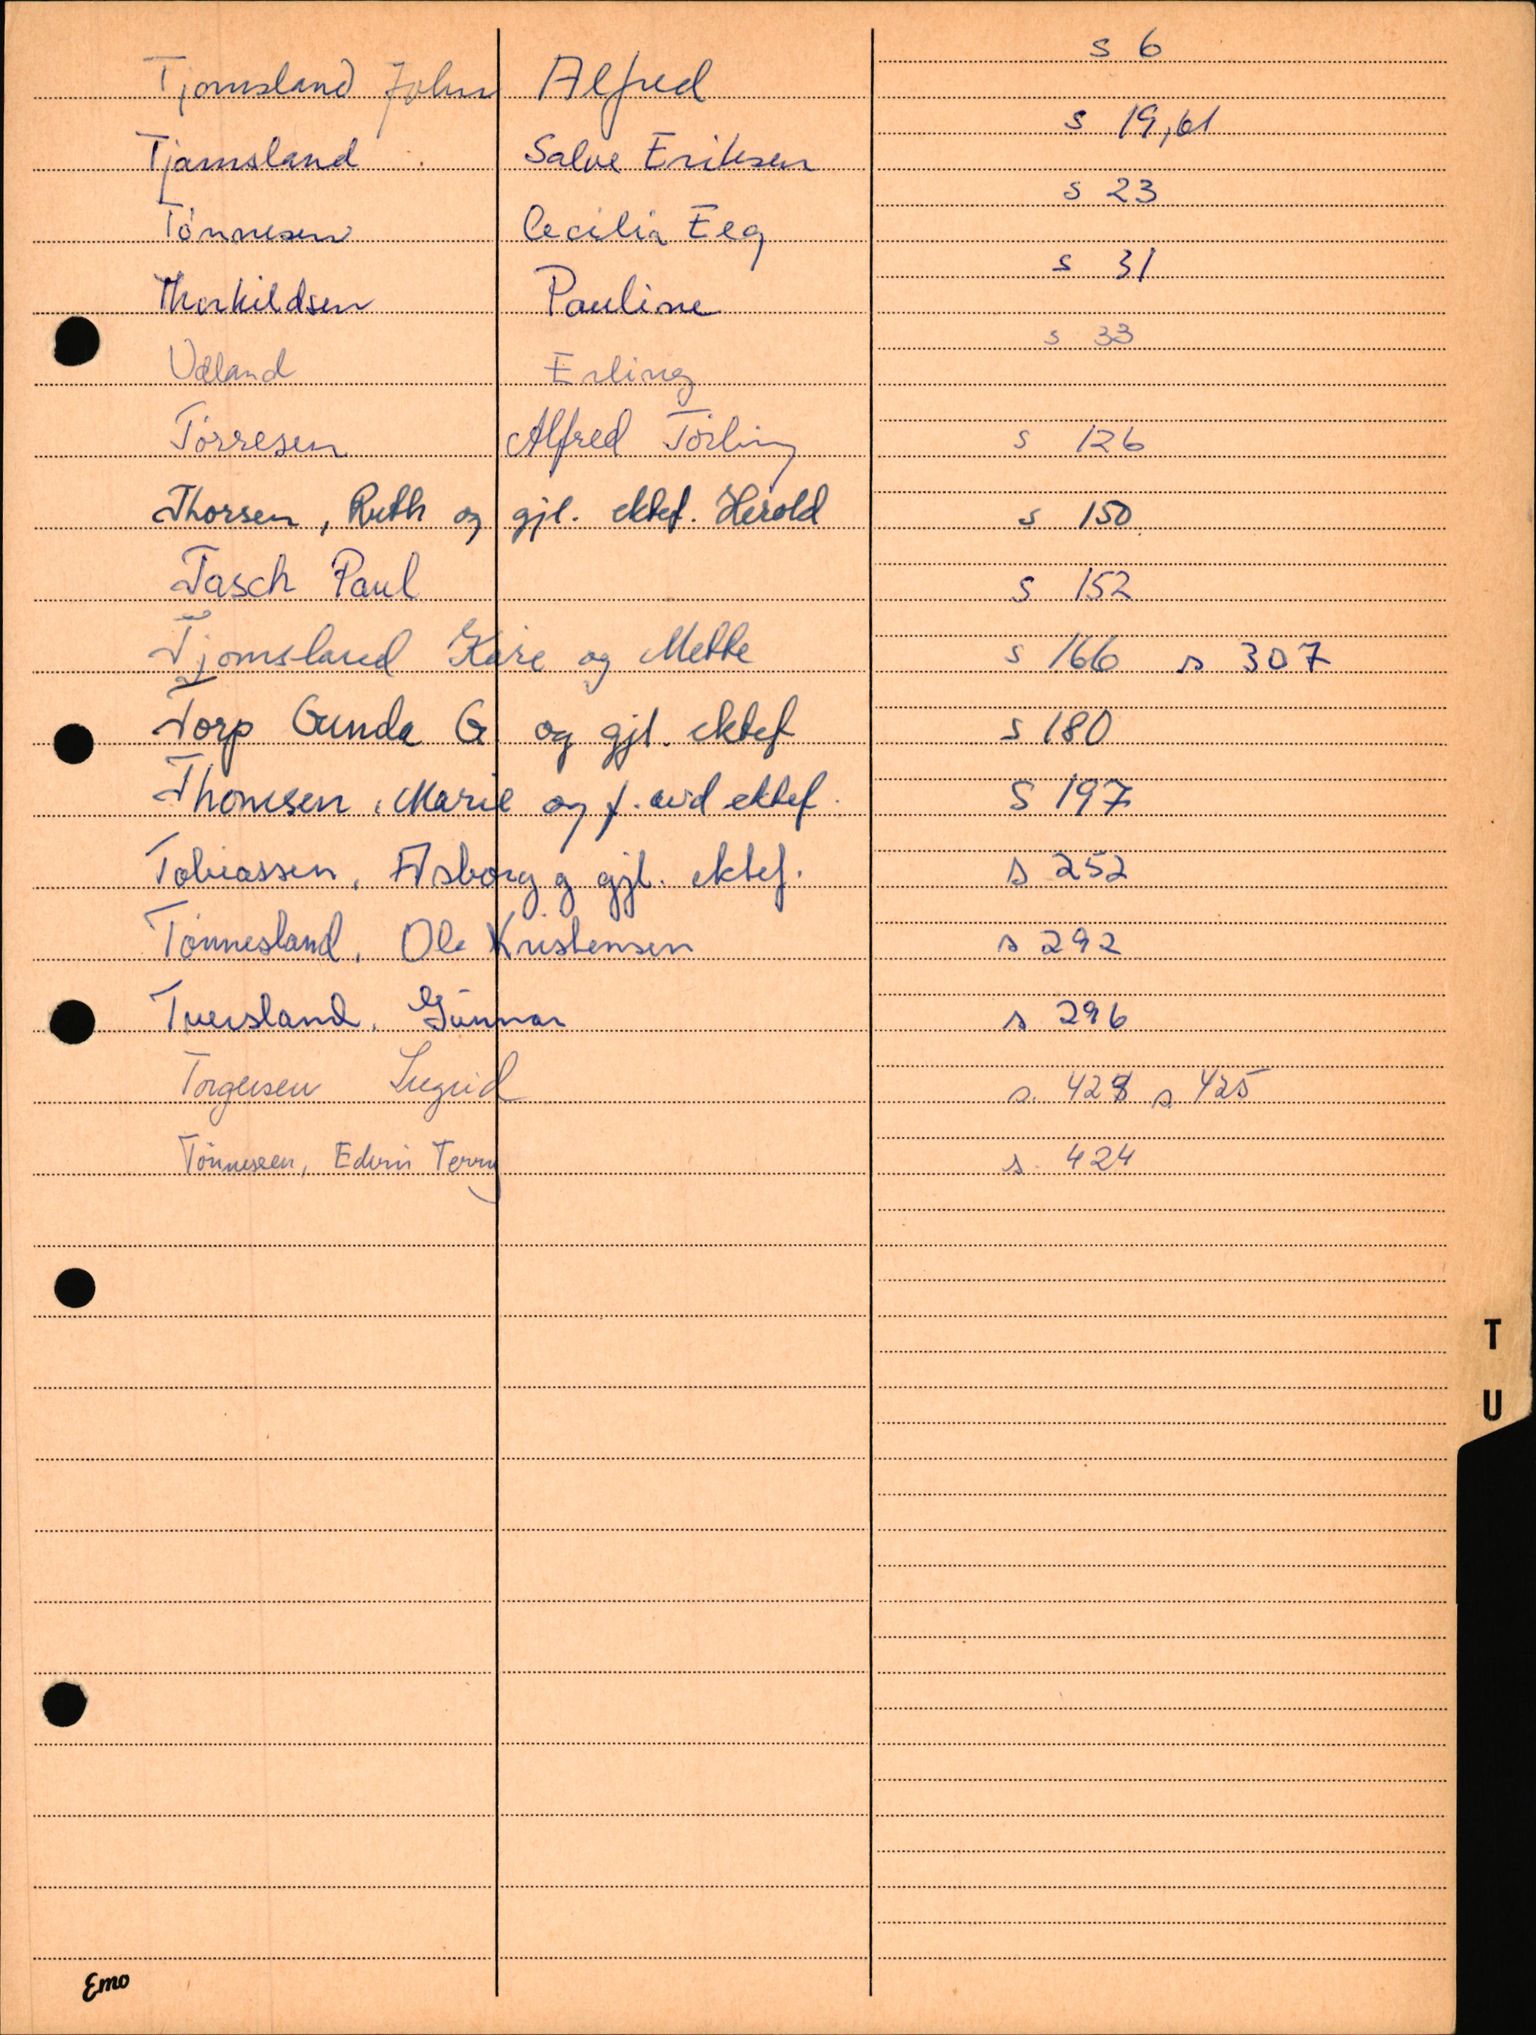 Tjomsland John Alfred s 6
Tjamsland Salve Eriksen s 19,61
Tönnesen Cecilia Eeg s 23
Thorkildsen Pauline s 31
Udland Erling s 33
Törresen Alfred Törling s 126
Thorsen, Ruth og gjl. ektef. Herold s 150
Tasch Paul s 152
Tjomsland Kåre og Mette s 166 s 307
Torp Gunda G og gjl. ektef s 180
Thomsen, Marie og f. avd ektef. s 197
Tobiassen, Asborg g gjl. ektef. s 252
Tönnesland, Ole Kristensen s 292
Tveisland, Gunnar s 296
Torgersen Ingrid s. 428 s 425
Tönnesen, Edvin Terry s. 424
T
U
Emo